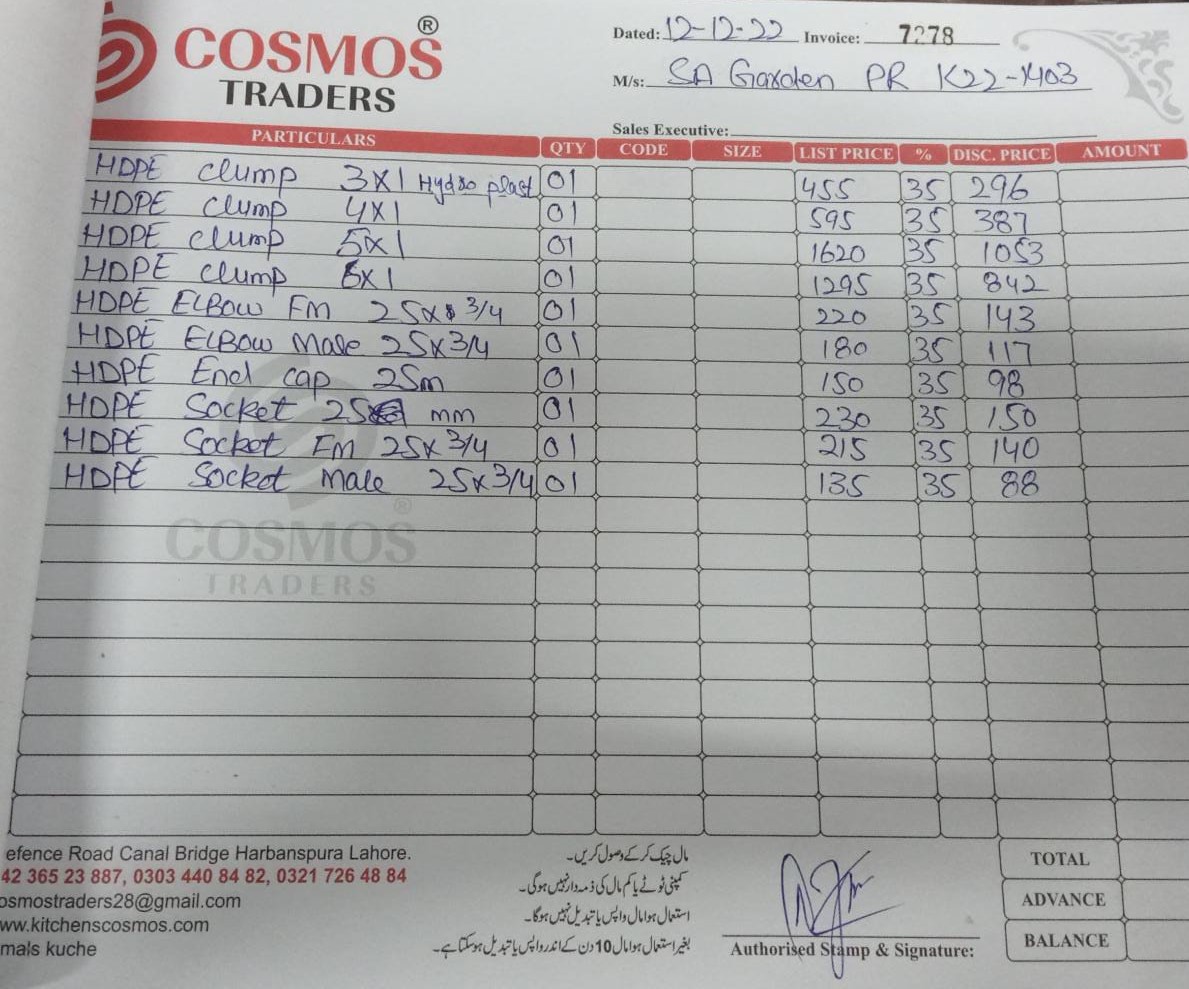 COSMOS ®
TRADERS
Dated: 12-12-22 Invoice: 7278
M/s: SA Garden PR K22-1403
Sales Executive:
PARTICULARS QTY CODE SIZE LIST PRICE % DISC. PRICE AMOUNT
HDPE Clump 3x1 Hydro plast 01 455 35 296
HDPE Clump 4x1 01 595 35 387
HDPE Clump 5x1 01 1620 35 1053
HDPE Clump 6x1 01 1295 35 842
HDPE ELBow FM 25x 3/4 01 220 35 143
HDPE ELBow Male 25x3/4 01 180 35 117
HDPE End cap 25m 01 150 35 98
HDPE Socket 25 mm 01 230 35 150
HDPE Socket FM 25x3/4 01 215 35 140
HDPE Socket Male 25x3/4 01 135 35 88
COSMOS ®
TRADERS
efence Road Canal Bridge Harbanspura Lahore.
42 365 23 887, 0303 440 84 82, 0321 726 48 84
osmostraders28@gmail.com
ww.kitchenscosmos.com
mals kuche
مال چیک کر کے وصول کریں۔
کمپنی ٹوٹے یا کم مال کی ذمہ دار نہیں ہوگی۔
استعمال ہوا مال واپس یا تبدیل نہیں ہوگا۔
بغیر استعمال ہوا مال 10 دن کے اندر واپس یا تبدیل ہوسکتا ہے۔
Authorised Stamp & Signature:
TOTAL
ADVANCE
BALANCE